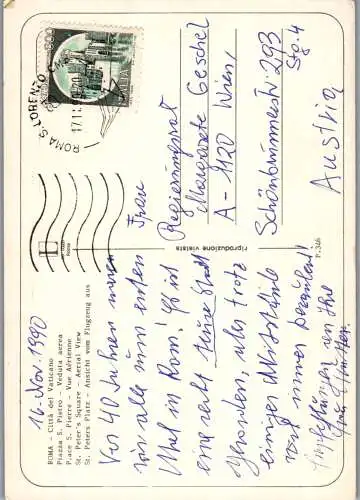 ROMA - Città del Vaticano
Piazza S. Pietro - Veduta aerea
Place S. Pierre - Vue Aérienne
St. Peter's Square - Aerial View
St. Peters Platz - Ansicht vom Flugzeug aus
16. Nov. 1990
Vor 40 Jahren waren
wir alle zum ersten
Mal in Rom! Es ist
eine recht teure Stadt
geworden, aber trotz
einiger Mißstände
noch immer
Ihre
riproduzione vietata
ROMA S. LORENZO
17.11.90
ITALIA
Frau
Regierungsrat
Margarete Geschel
A - 1120 Wien,
Schönbrunnerstr. 293
Stg. 4
Austria